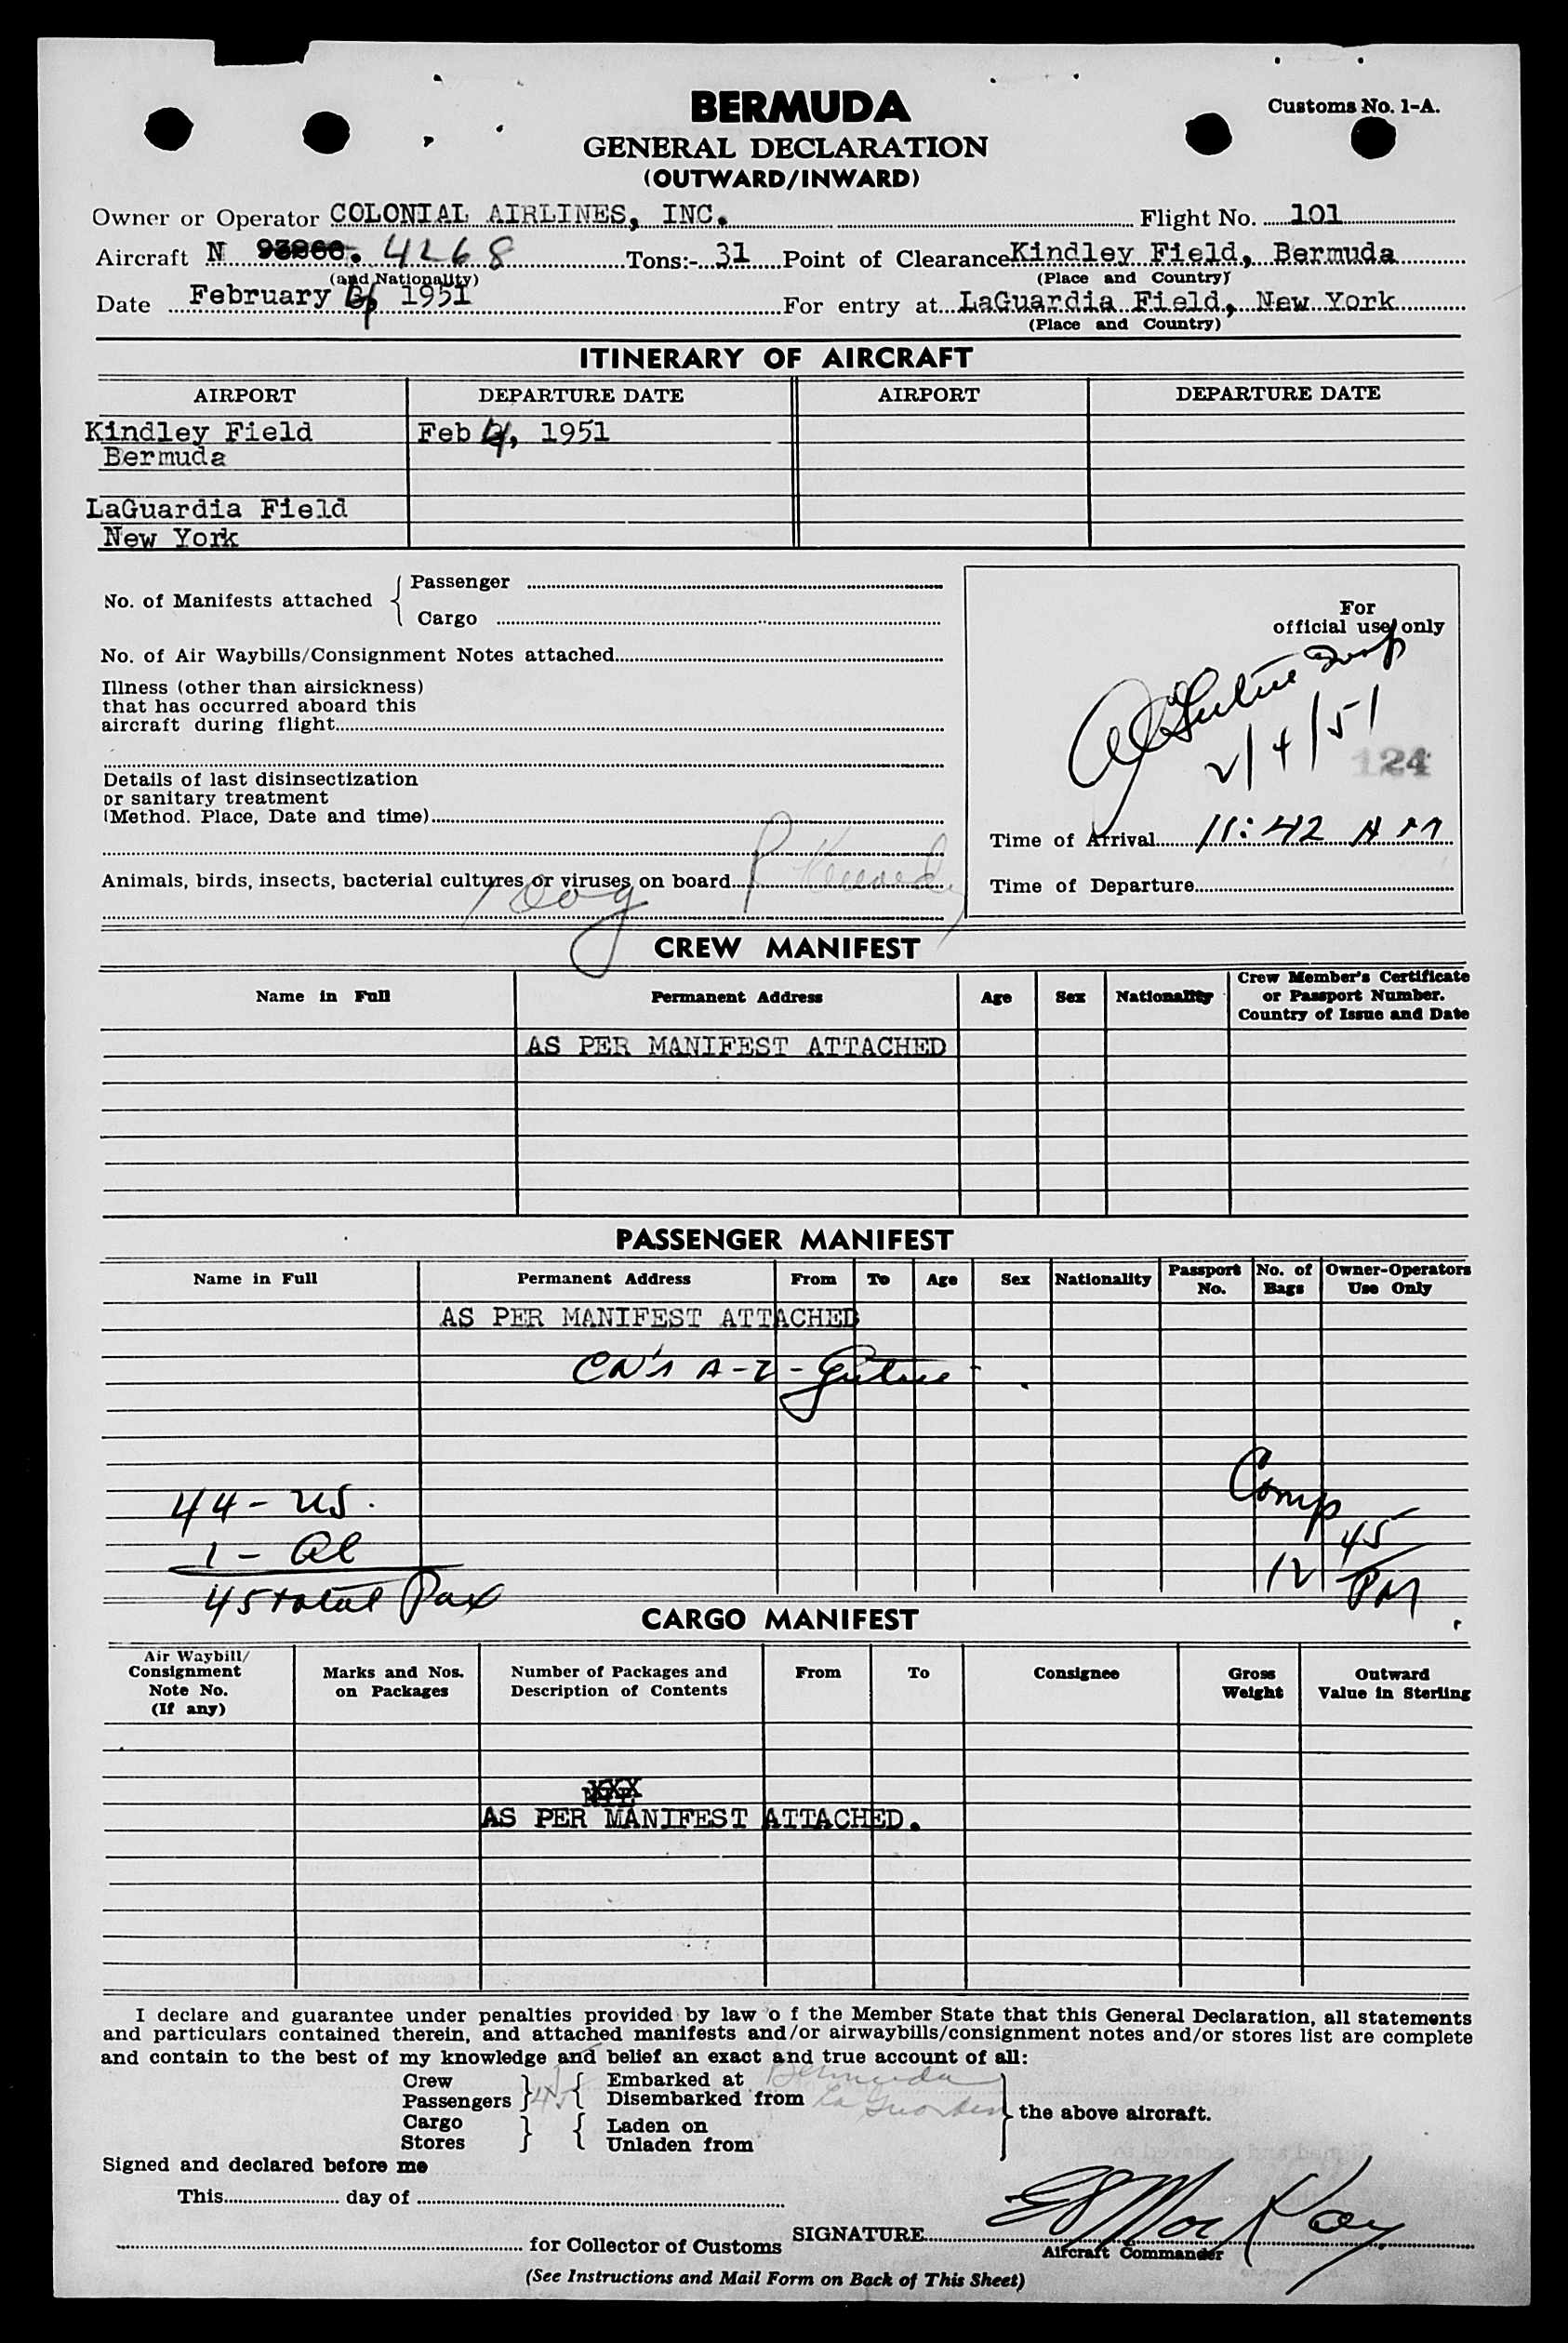 BERMUDA
Customs No. 1-A.
GENERAL DECLARATION
(OUTWARD/INWARD)
Owner or Operator COLONIAL AIRLINES, INC. Flight No. 101
Aircraft N 4268 Tons:- 31 Point of Clearance Kindley Field, Bermuda
(and Nationality) (Place and Country)
Date February 4, 1951 For entry at LaGuardia Field, New York
(Place and Country)
ITINERARY OF AIRCRAFT
AIRPORT DEPARTURE DATE AIRPORT DEPARTURE DATE
Kindley Field Feb 4, 1951
Bermuda
LaGuardia Field
New York
No. of Manifests attached { Passenger
Cargo
No. of Air Waybills/Consignment Notes attached
Illness (other than airsickness)
that has occurred aboard this
aircraft during flight
Details of last disinsectization
or sanitary treatment
(Method. Place, Date and time)
Animals, birds, insects, bacterial cultures or viruses on board
1 Dog
For
official use only
2/4/51
124
Time of Arrival 11:42 AM
Time of Departure
CREW MANIFEST
Name in Full Permanent Address Age Sex Nationality Crew Member's Certificate
or Passport Number.
Country of Issue and Date
AS PER MANIFEST ATTACHED
PASSENGER MANIFEST
Name in Full Permanent Address From To Age Sex Nationality Passport No. No. of Bags Owner-Operators Use Only
AS PER MANIFEST ATTACHED
CN's A-Z -
44 - US.
1 - Al
45 total Pax
Comp
45
12 PM
CARGO MANIFEST
Air Waybill/
Consignment
Note No.
(If any)
Marks and Nos.
on Packages
Number of Packages and
Description of Contents
From
To
Consignee
Gross
Weight
Outward
Value in Sterling
XXX
AS PER MANIFEST ATTACHED.
I declare and guarantee under penalties provided by law o f the Member State that this General Declaration, all statements
and particulars contained therein, and attached manifests and/or airwaybills/consignment notes and/or stores list are complete
and contain to the best of my knowledge and belief an exact and true account of all:
Crew } { Embarked at Bermuda
Passengers } 45 { Disembarked from La Guardia
} the above aircraft.
Cargo } { Laden on
Stores } { Unladen from
Signed and declared before me
This day of
for Collector of Customs
SIGNATURE MacKay
Aircraft Commander
(See Instructions and Mail Form on Back of This Sheet)